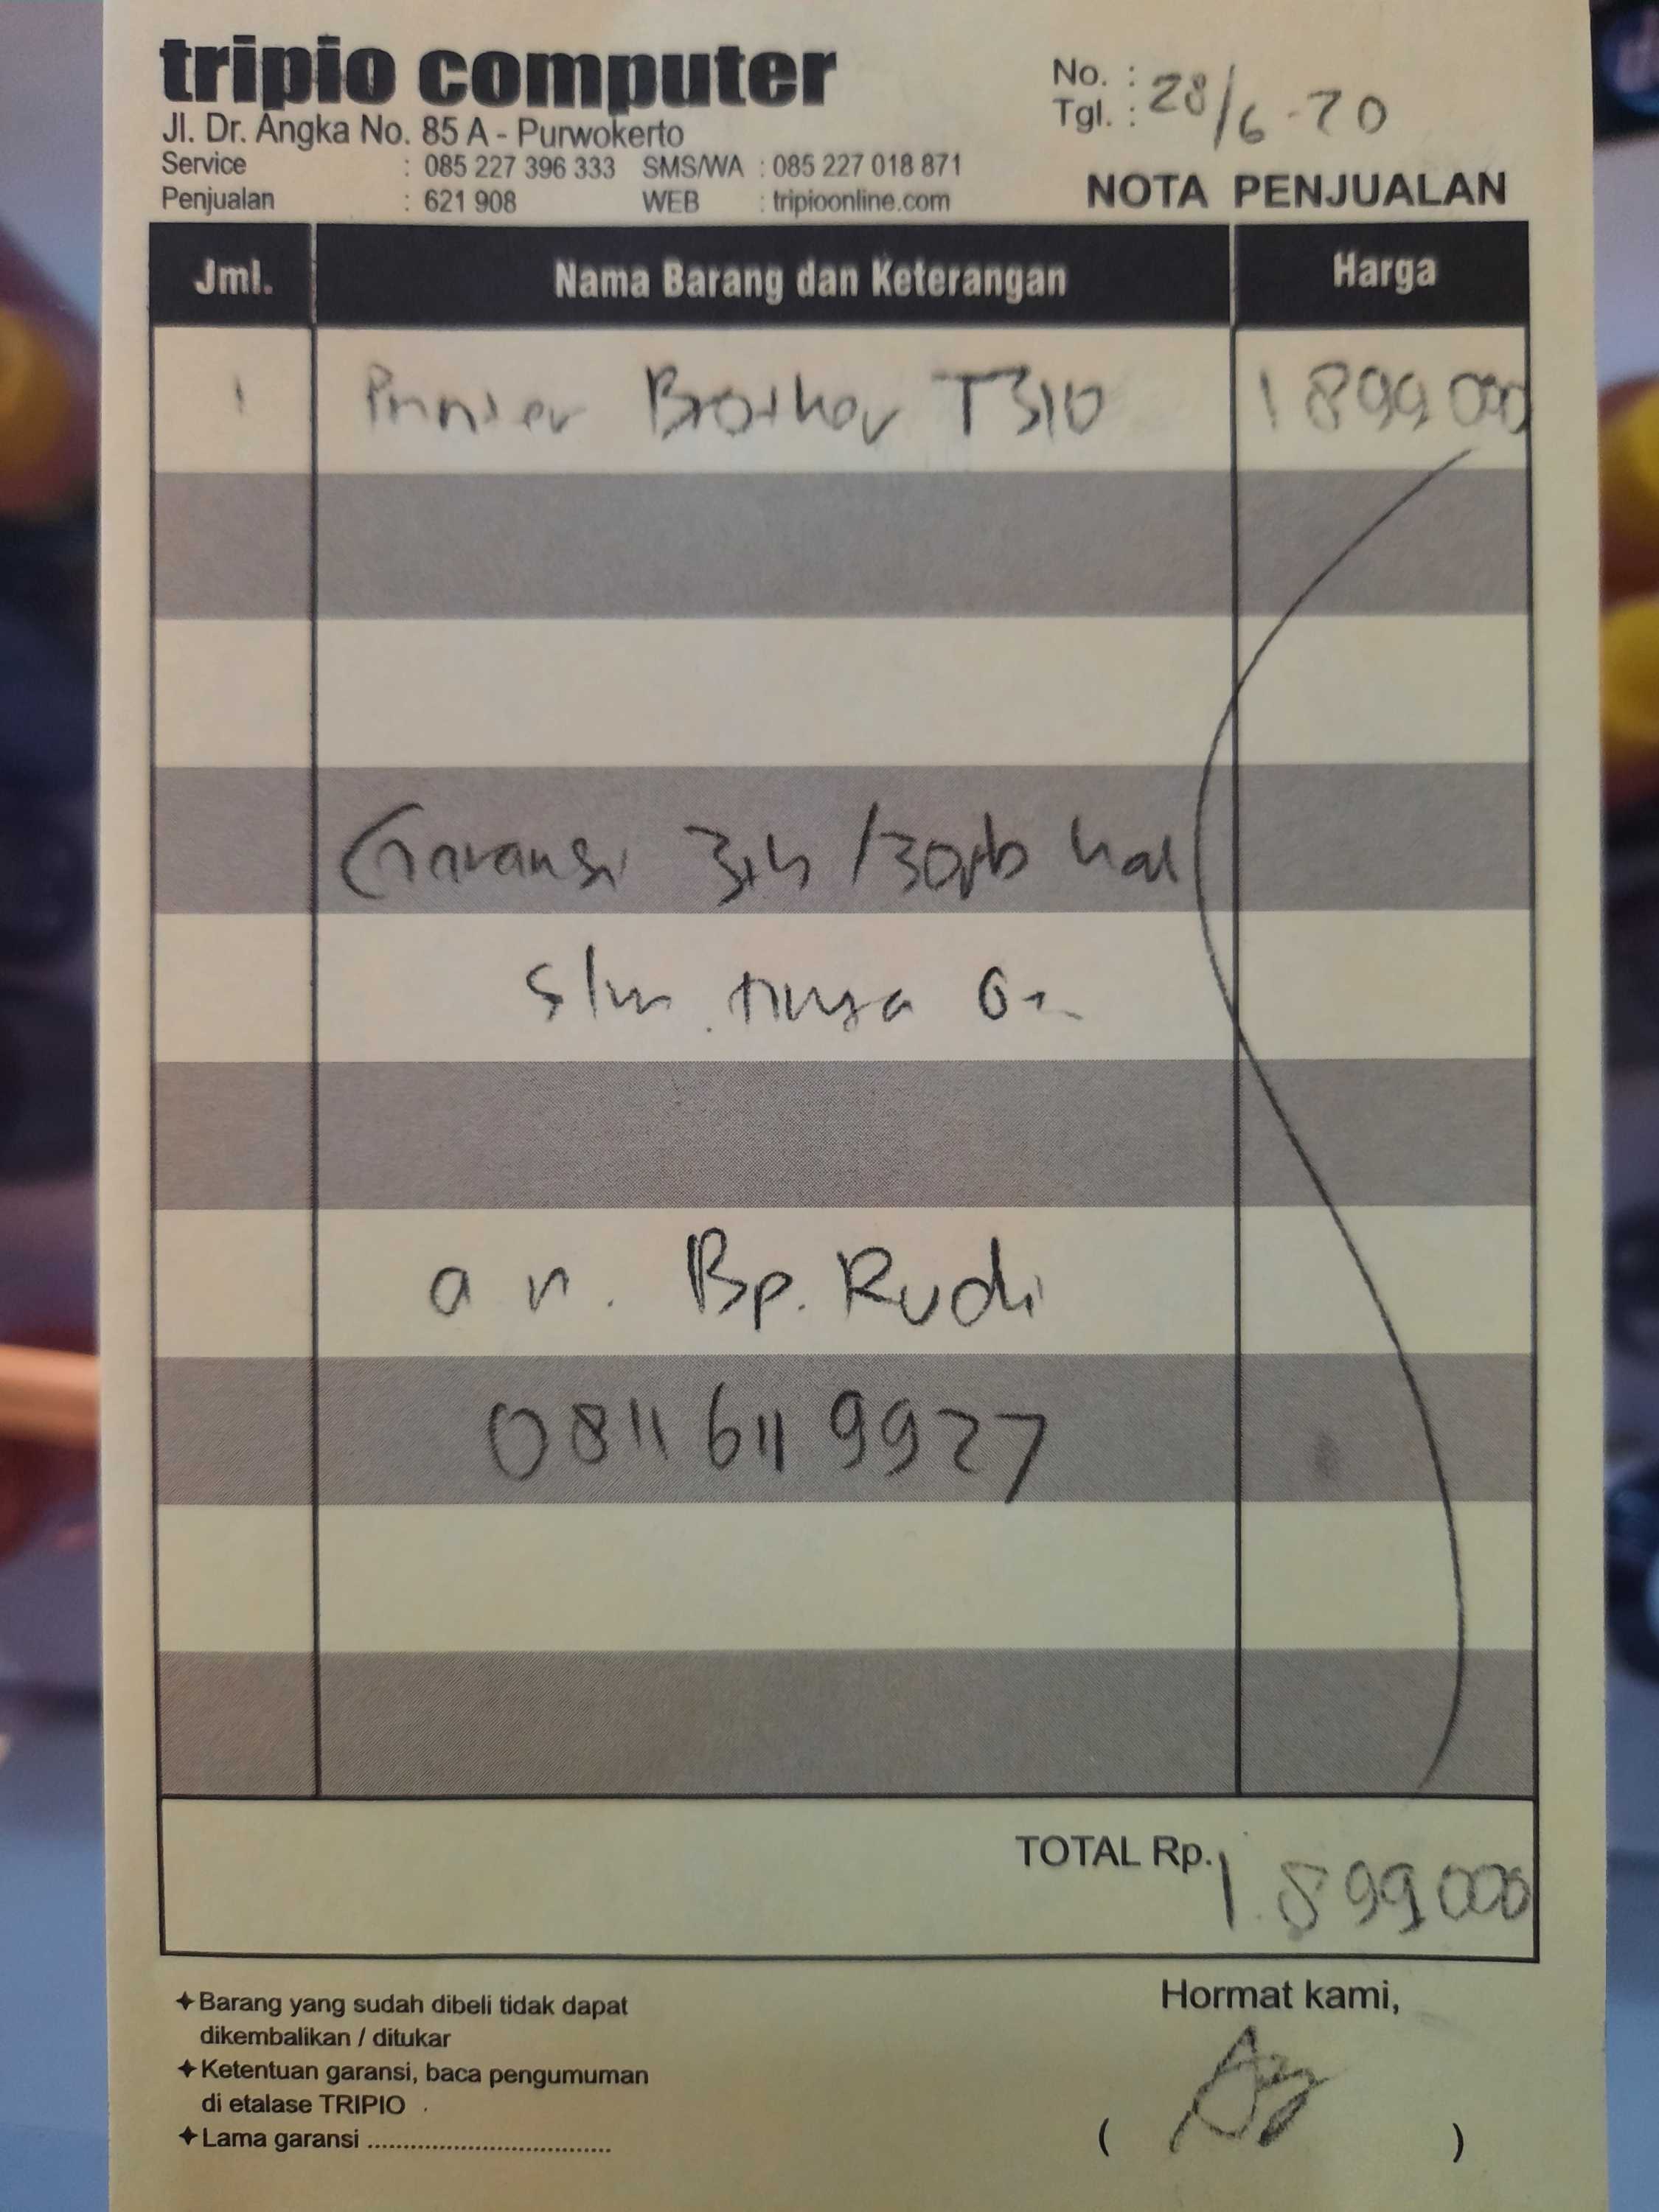 tripio computer
Jl. Dr. Angka No. 85 A - Purwokerto
Service : 085 227 396 333 SMS/WA : 085 227 018 871
Penjualan : 621 908 WEB : tripioonline.com
No. :
Tgl. : 28/6-20
NOTA PENJUALAN
Jml. Nama Barang dan Keterangan Harga
1 Printer Brother T310 1899000
Garansi 3th /30rb hal
slm tinta
a n. Bp. Rudi
0811 611 9927
TOTAL Rp. 1.899000
✦ Barang yang sudah dibeli tidak dapat
dikembalikan / ditukar
✦ Ketentuan garansi, baca pengumuman
di etalase TRIPIO
✦ Lama garansi ....................................
Hormat kami,
( )